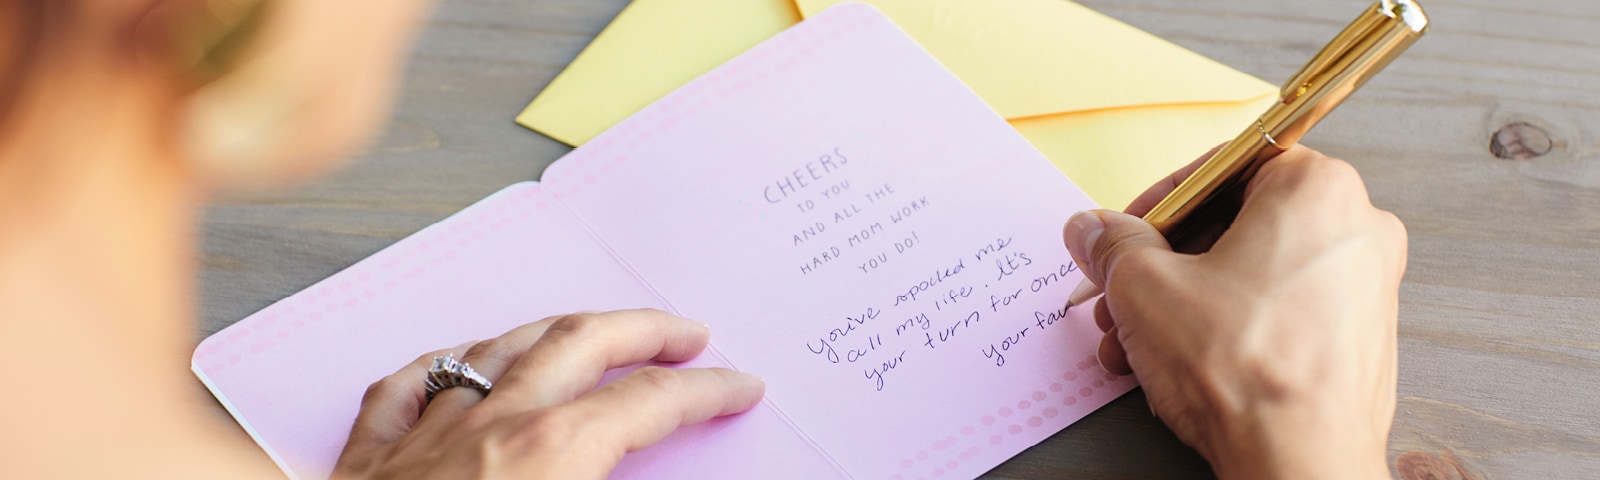 CHEERS
TO YOU
AND ALL THE
HARD MOM WORK
YOU DO!
You've spoiled me
all my life. It's
your turn for once
your fav